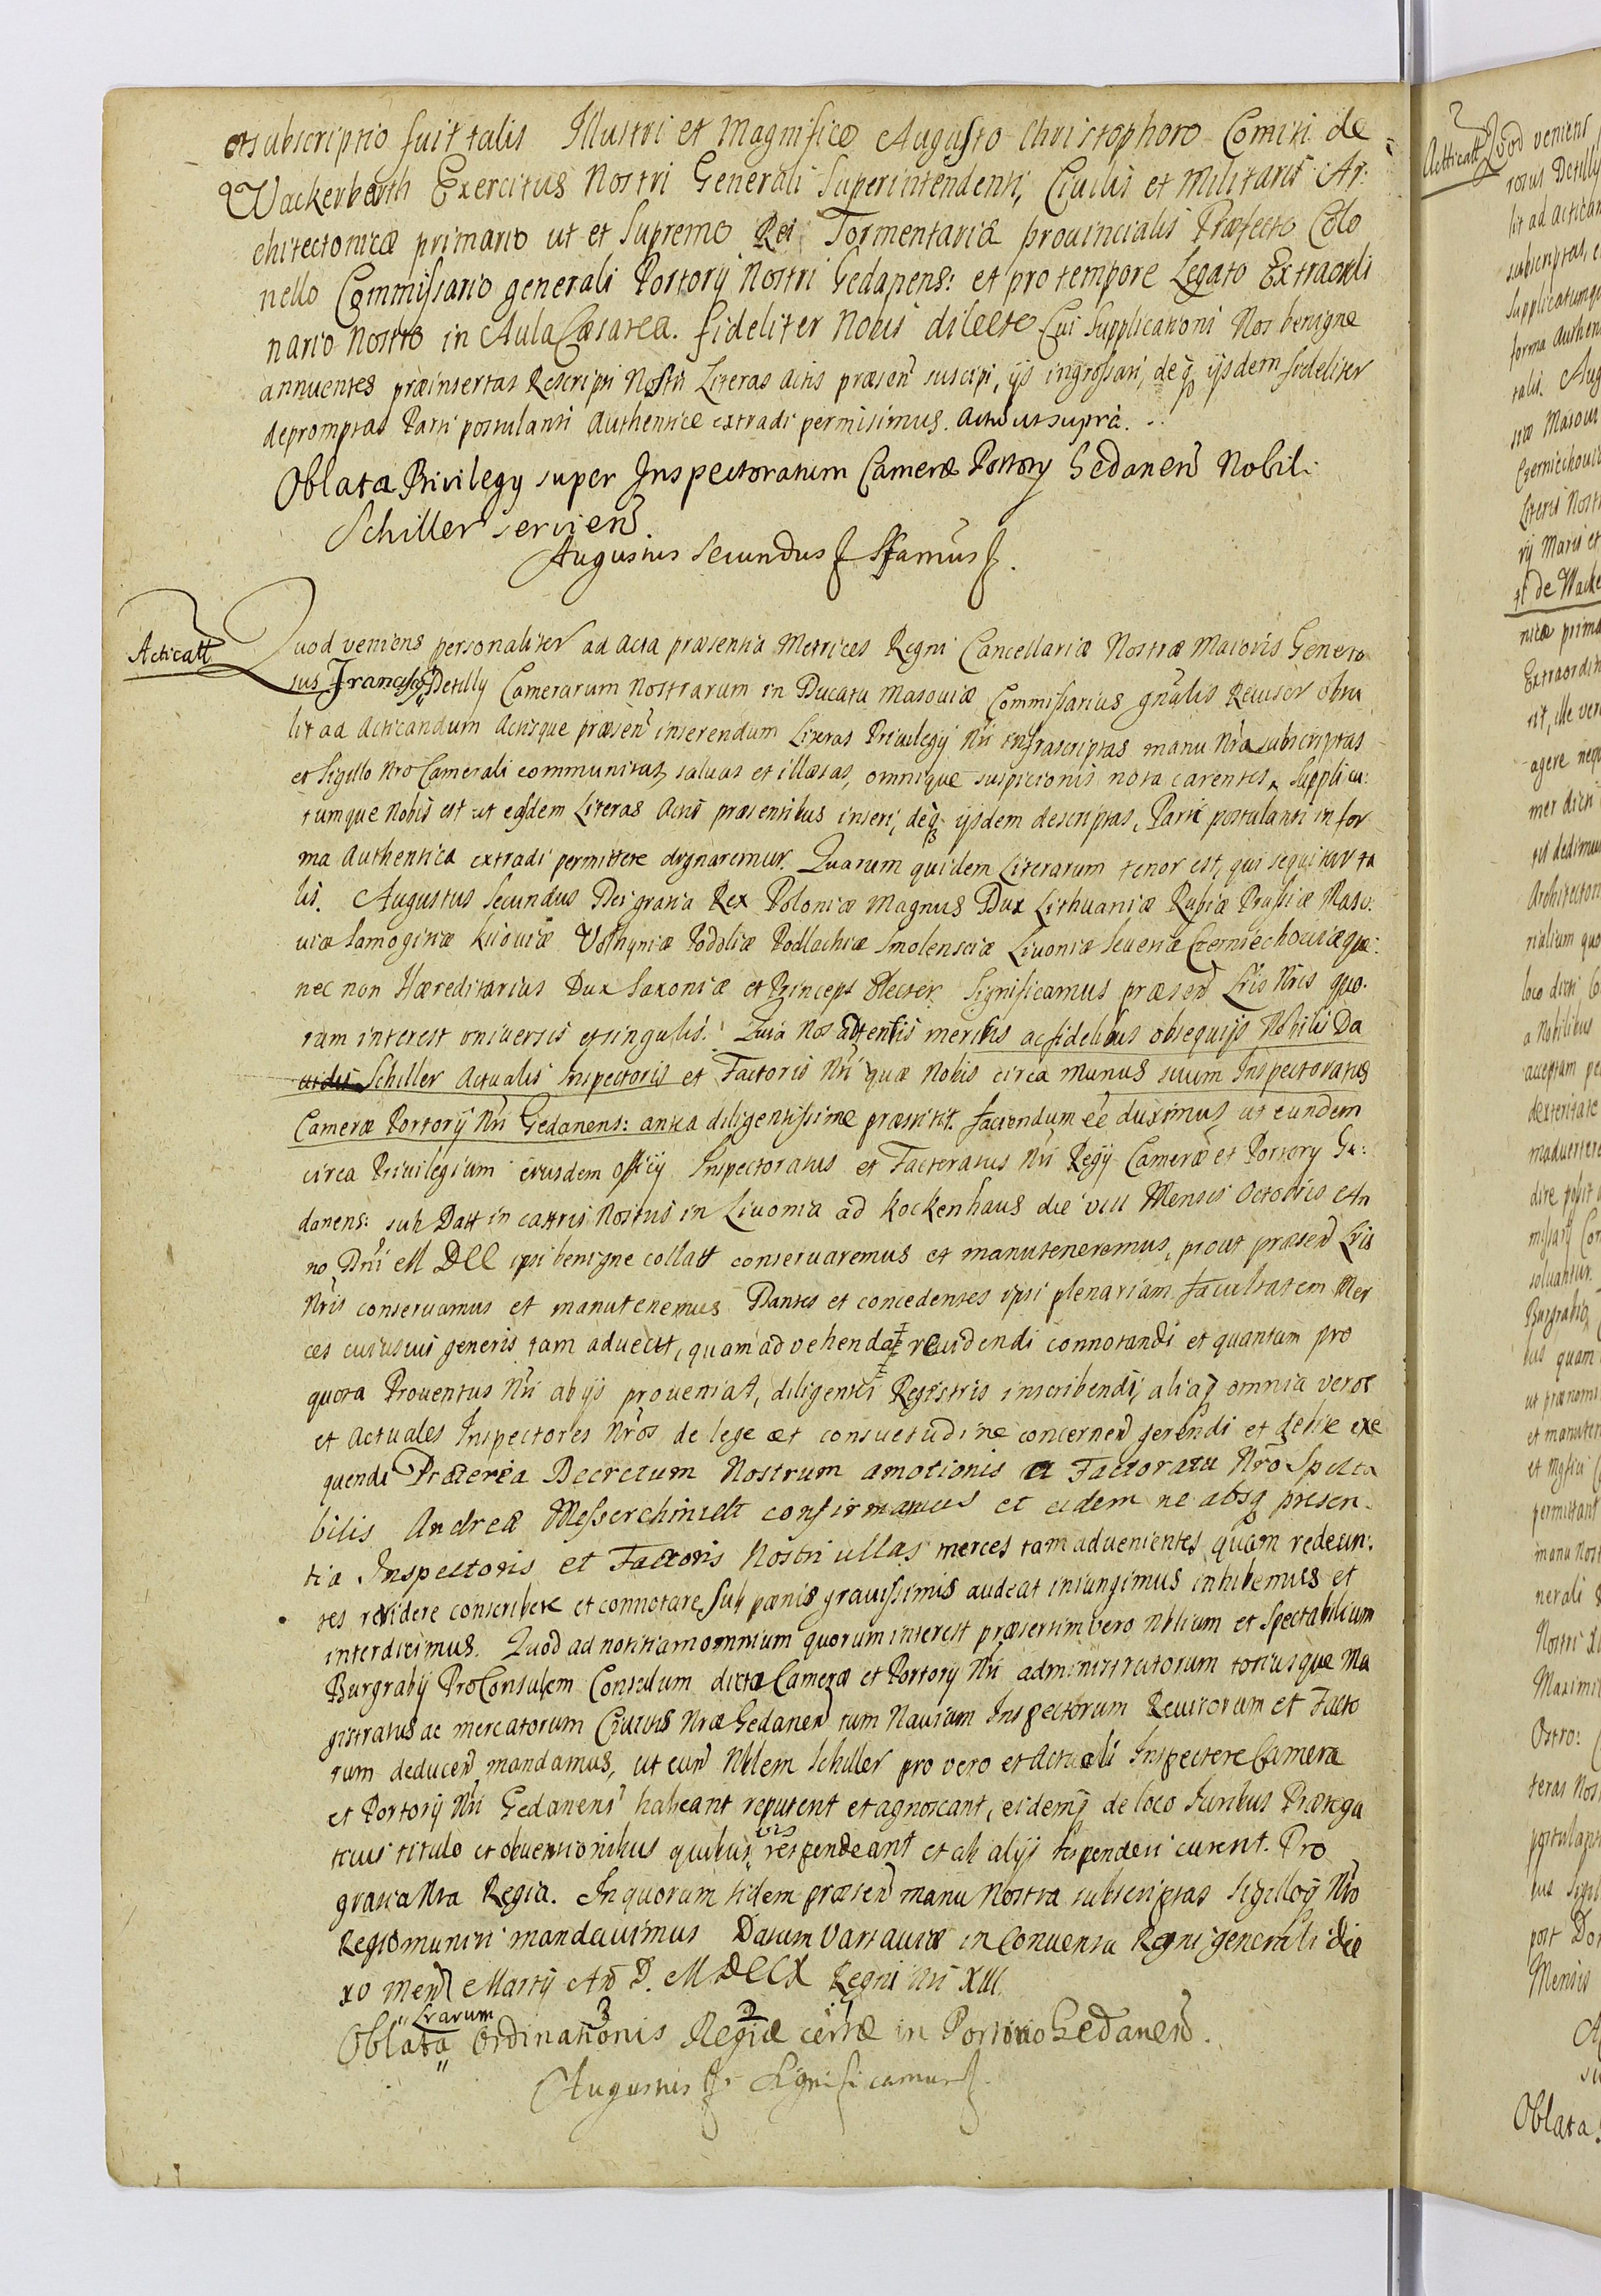 et subscriptio fuit talis Illustri et Magnifico Augusto Christophoro Comiti de
Wackerbarth Exercitus Nostri Generali Superintendenti, Civilis et Militaris Ar:
chitectonicæ primario ut et Supremo Rei Tormentariæ provincialis Præfecto Colo
nello Commissario generali Portorij Nostri Gedanens: et pro tempore Legato Extraordi
nario Nostro in Aula Cæsarea. fideliter Nobis dilecto Cui Supplicationi Nos benigne
annuentes præinsertas Rescripti Nostri Literas Actis præsen suscipi, ijs ingrossari, deq ijsdem fideliter
depromptas Parti postulanti Authentice extradi permisimus. Actu ut supra.
Oblata Privilegy super Inspectoratum Cameræ Portory Gedanen Nobili
Schiller servien.
Augustus Secundus Sfamus
Acticatt
Quod veniens personaliter ad Acta præsentia Metrices Regni Cancellariæ Nostræ Maioris Genero
sus Franciscus Detilly Camerarum Nostrarum in Ducatu Masoviæ Commissarius gnalis Revisor obtu
lit ad Acticandum Actisque præsen inserendum Literas Privilegij Nri infrascriptas manu Nra subscriptas
et Sigillo Nro Camerali communitas, salvas et illæsas, omnique suspicionis nota carentes, Supplica:
tumque Nobis est ut easdem Literas Actis præsentibus inseri, deq ijsdem descriptas, Parti postulanti in for
ma Authentica extradi permittere dignaremur. Quarum quidem Literarum tenor est, qui sequitur ta
lis. Augustus Secundus Dei gratia Rex Poloniæ Magnus Dux Lithuaniæ Rußiæ Prussiæ Maso:
viæ Samogitiæ Kijoviæ Volhyniæ Podoliæ Podlachiæ Smolensciæ Livoniæ Severiæ Czerniechoviæque:
nec non Hæreditarius Dux Saxoniæ et Princeps Elector. Significamus præsen Lris Nris quo.
rum interest universis et singulis. Quia Nos attentis meritis ac fidelibus obsequijs Nobilis Da
vidis Schiller Actualis Inspectoris et Factoris Nri quæ Nobis circa Munus suum Inspectoratus
Cameræ Portorij Nri Gedanens: antea diligentissime præstitit. faciendum ee duximus, ut eundem
circa Privilegium eiusdem officij Inspectoratus et Factoratus Nri Regij Cameræ et Portory Ge:
danens: sub Datt in castris Nostris in Livonia ad Kockenhaus die VIII Mensis Octobris An
no Dni M DCC ipsi benigne collatt conservaremus et manuteneremus, prout præsen Lris
Nris conservamus et manutenemus Dantes et concedentes ipsi plenariam facultatem Mer
ces cuiusvis generis tam advectt, quam advehendat revidendi connotandi et quantum pro
quota Proventus Nri ab ijs proveniat, diligenter Registris inscribendi, aliaq omnia veros
et Actuales Inspectores Nros de lege et consuetudine concernen gerendi et debite exe
quendi Præterea Decretum Nostrum amotionis a Factoratu Nro Specta
bilis Andreæ Messerchmidt confirmamus et eidem ne absq presen
tia Inspectoris et Factoris Nostri ullas merces tam advenientes, quam redeun:
tes revidere conscribere et connotare sub pænis gravissimis audeat iniungimus inhibemus et
interdicimus. Quod ad notitiam omnium quorum interest præsertim vero Nblium et Spectabilium
Burgrabij ProConsulem Consulum dictæ Cameræ et Portorij Nri administratorum totiusque Ma
gistratus ac mercatorum Civitatis Nræ Gedanen tum Navium Inspectorum Revisorum et Facto
rum deducen mandamus, ut eun Nblem Schiller pro vero et Actuali Inspectore Cameræ
et Portorij Nri Gedanens habeant reputent et agnoscant, eidemq de loco Iuribus Præroga
tivis titulo et obventionibus quibusvis respondeant et ab alijs responderi curent. Pro
gratia Nra Regia. In quorum fidem præsen manu Nostra subscriptas Sigilloq Nro
Regio muniri mandavimus Datum Varsaviæ in Conventu Regni generali die
XO Men Martij An D. MDCCX Regni Nri XIII.
Lrarum
Oblata Ordinationis Regiæ certæ in Portorio Gedanen.
Augustus Significamus